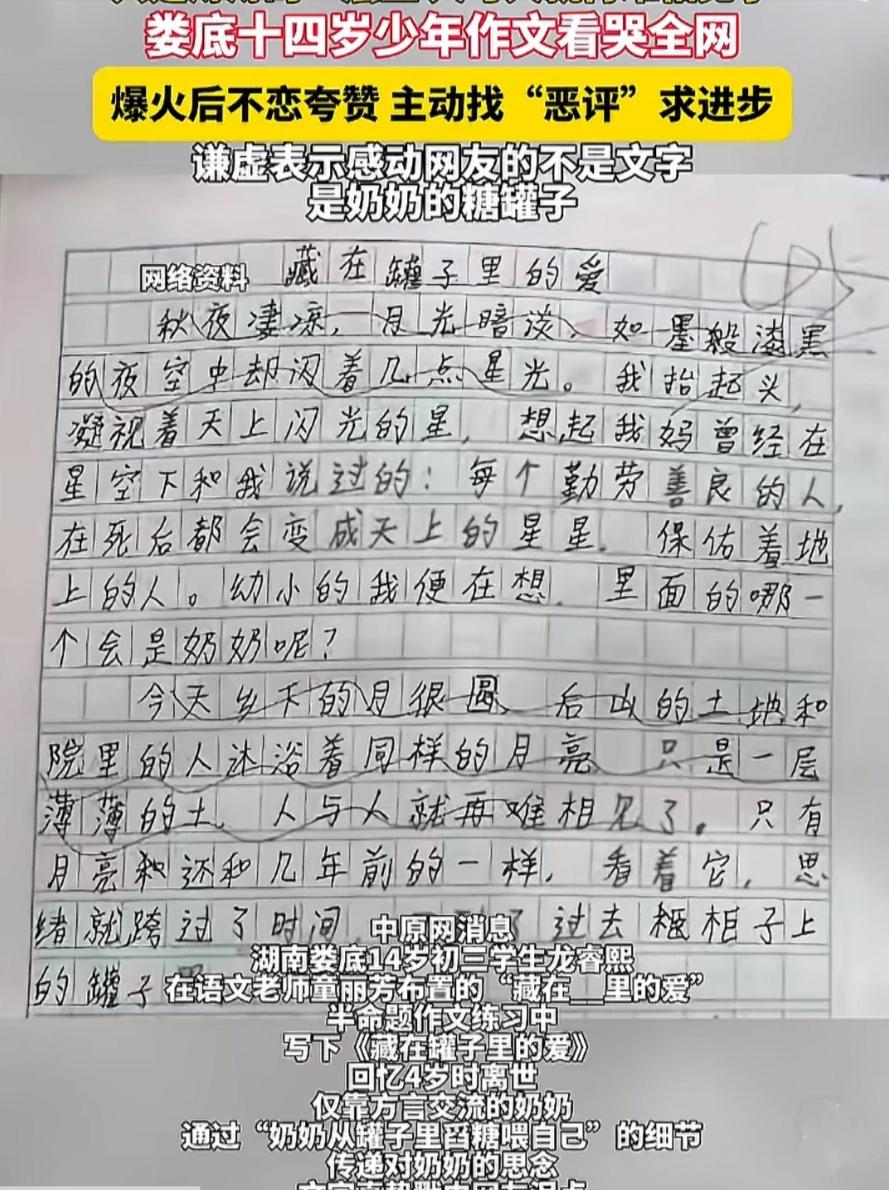 娄底十四岁少年作文看哭全网
爆火后不恋夸赞 主动找“恶评”求进步
谦虚表示感动网友的不是文字
是奶奶的糖罐子
网络资料
藏在罐子里的爱
秋夜凄凉,月光暗淡、如墨般漆黑
的夜空中却闪着几点星光。我抬起头,
凝视着天上闪光的星,想起我妈曾经在
星空下和我说过的:每个勤劳善良的人,
在死后都会变成天上的星星.保佑着地
上的人。幼小的我便在想.里面的哪一
个会是奶奶呢?
今天乡下的月很圆、后山的土地和
院里的人沐浴着同样的月亮 只是一层
薄薄的土.人与人就再难相见了。只有
月亮和还和几年前的一样,看着它,思
绪就跨过了时间 过去 柜子上
的罐子
中原网消息
湖南娄底14岁初三学生龙睿熙
在语文老师童丽芳布置的“藏在__里的爱”
半命题作文练习中
写下《藏在罐子里的爱》
回忆4岁时离世
仅靠方言交流的奶奶
通过“奶奶从罐子里舀糖喂自己”的细节
传递对奶奶的思念